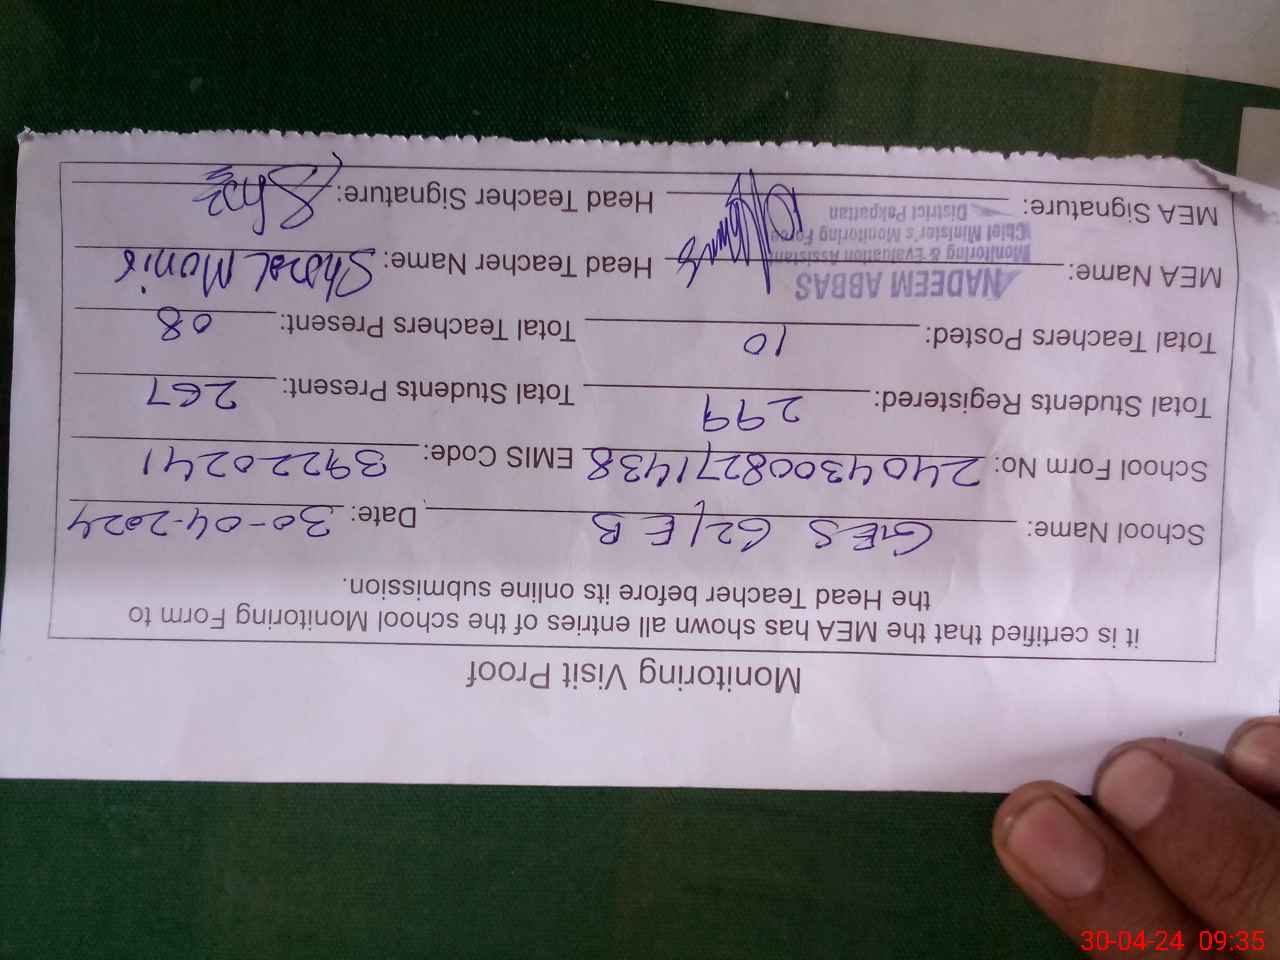 Monitoring Visit Proof
it is certified that the MEA has shown all entries of the school Monitoring Form to
the Head Teacher before its online submission.
School Name: GES 62/EB Date: 30-04-2024
School Form No: 24043008271438 EMIS Code: 39220241
Total Students Registered: 299 Total Students Present: 267
Total Teachers Posted: 10 Total Teachers Present: 08
MEA Name: Head Teacher Name:
NADEEM ABBAS
Monitoring & Evaluation Assistant
Chief Minister's Monitoring Force
District Pakpattan
MEA Signature: Head Teacher Signature:
30-04-24 09:35